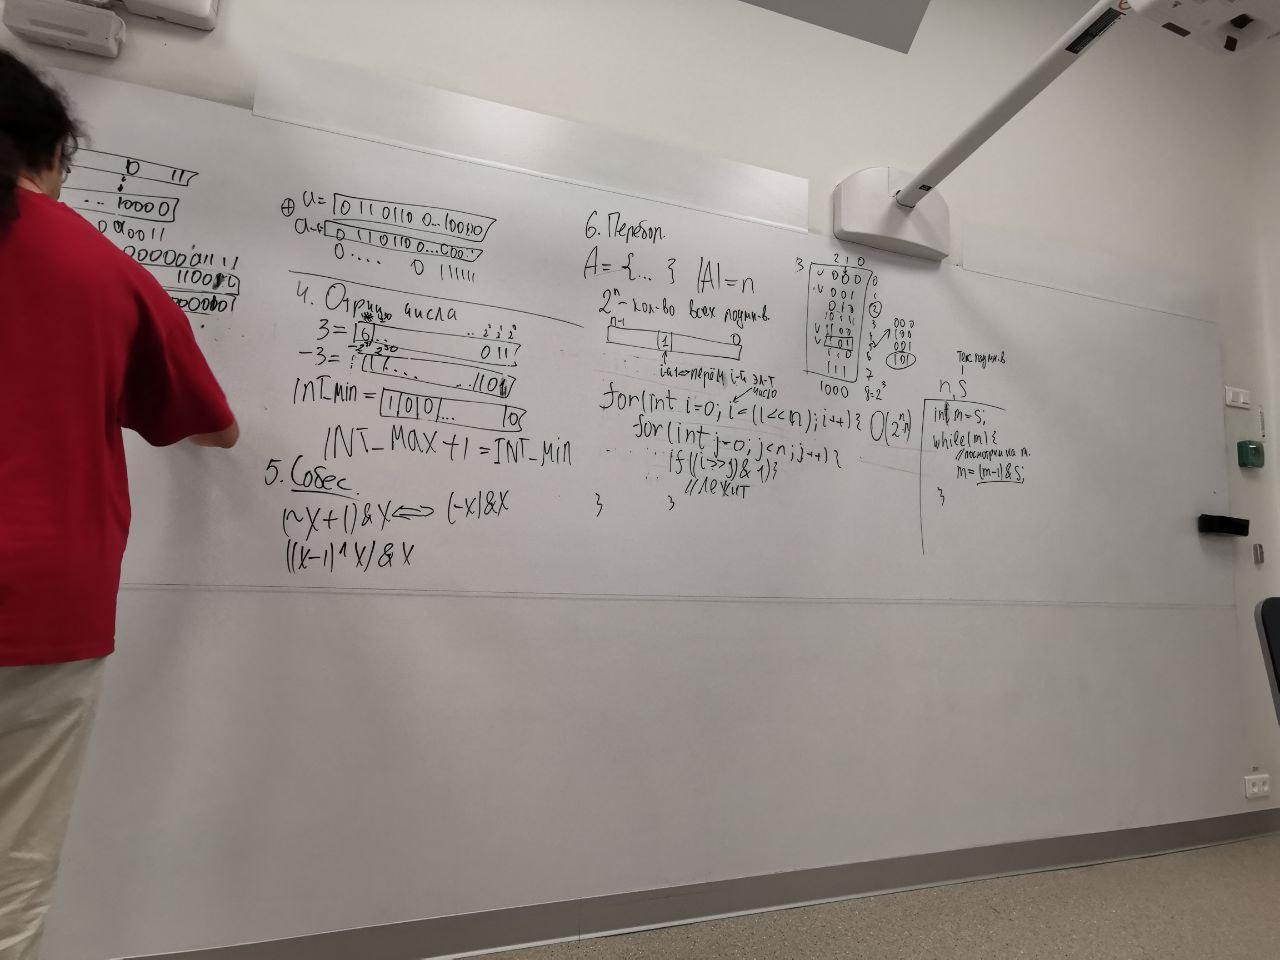 0 11
... 10000
00000
⊕ a = 0 1 1 0110 0...10000
0 1 1 0110 0...
0.... 0 111111
4. Отриц. числа
3 = 0 .. 2² 2¹ 2⁰
0 11
-3 = 11... ..1101
INT_min = 1 0 0 ... 0
INT_MAX + 1 = INT_min
5. Собес.
(~X+1)&X <=> (-X)&X
((X-1)^X)&X
6. Перебор.
A = {...} |A| = n
2ⁿ - кол-во всех подмн-в.
n-1 1 0
for(int i=0; i<(1<<n); i++){ O(2ⁿ·n)
for(int j=0; j<n; j++){
if((i>>j)&1){
// лежит
} }
3
2 1 0
000 0
001 1
010 2
011 3
100 4
101 5
110 6
111 7
1000 8=2³
000
100
001
101
тек. подмн-в
n, S
int m = S;
while(m){
// посмотрим на m.
m = (m-1) & S;
}